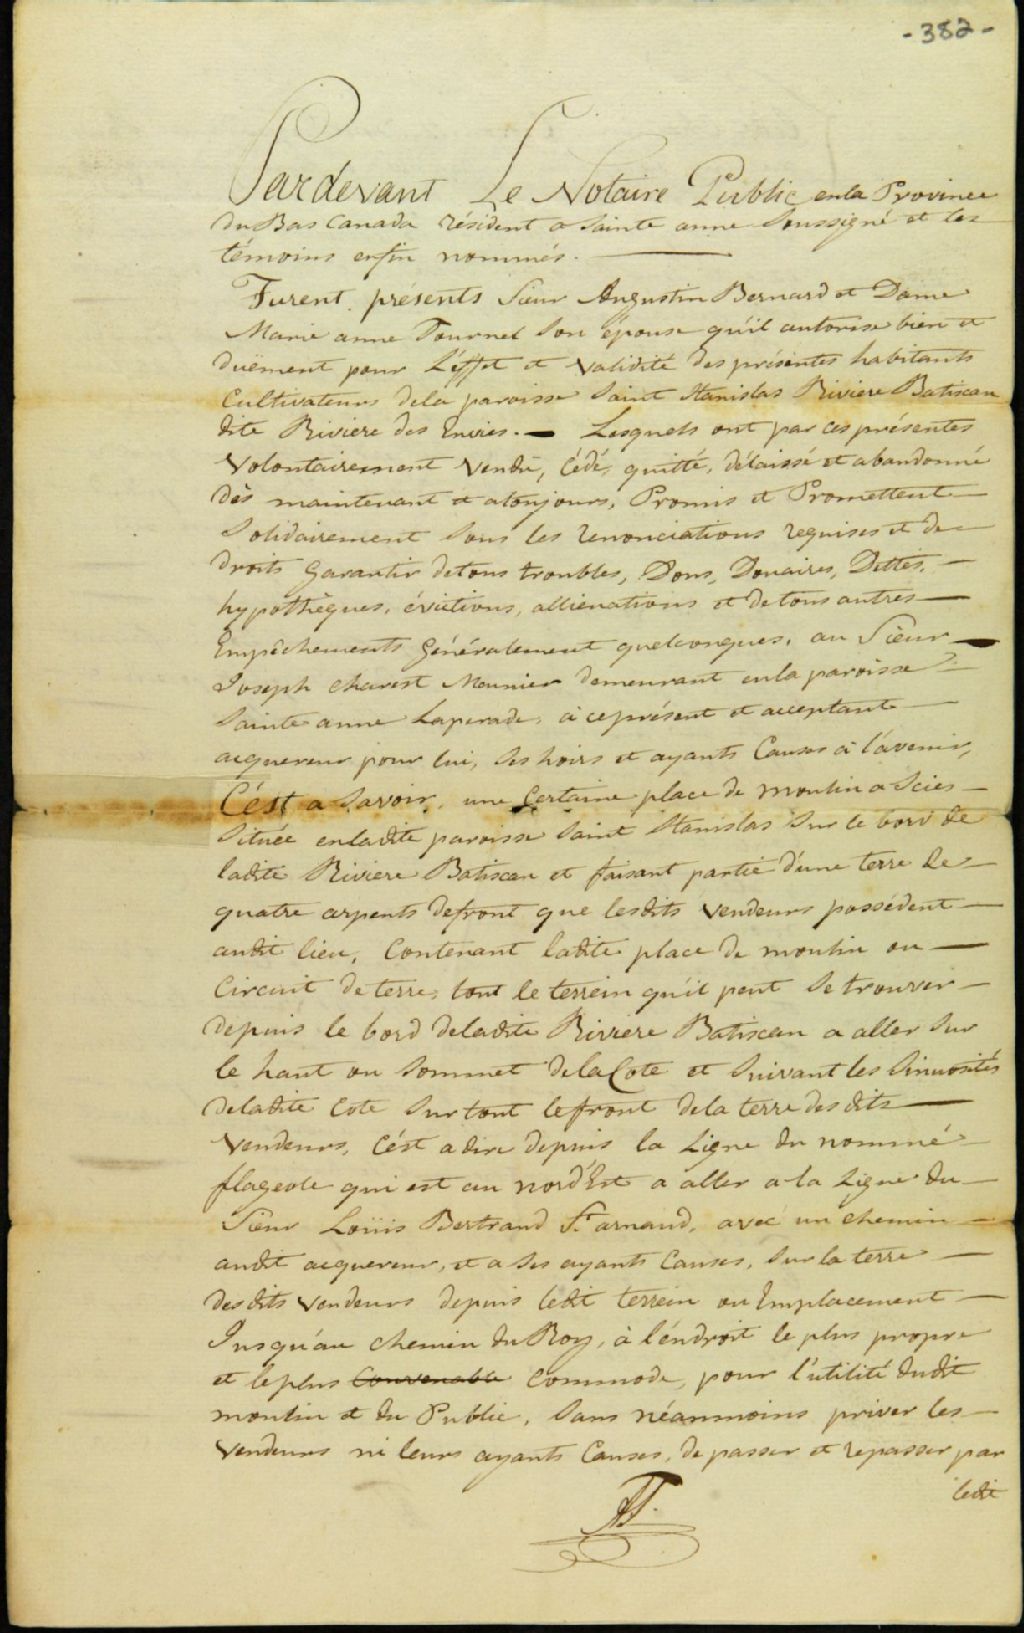 - 382 -
Pardevant Le Notaire Public en la Province
du Bas Canada résident a Sainte anne Soussigné et les
témoins enfin nommés.
Furent présents Sieur Augustin Bernard et Dame
Marie anne Tournel Son épouse qu'il autorise bien et
duëment pour L'effet et validité des présentes habitants
Cultivateurs dela paroisse Saint Stanislas Riviere Batiscan
dite Riviere des Envies. — Lesquels ont par ces présentes
Volontairement Vendu, Cédé, quitté, délaissé et abandonné
dès maintenant et atoujours, Promis et Promettent
Solidairement Sous les renonciations requises et de
droits Garantir detous troubles, Dons, Douaires, Dettes,
hypothèques, évictions, alliénations et de tous autres
Empêchements Généralement quelconques, au Sieur
Joseph charest Meunier demeurant enla paroisse
Sainte anne Laperade, à ceprésent et acceptant
acquereur pour lui, Ses hoirs et ayants Causes à l'avenir,
C'ést a Savoir, une Certaine place de moulin a Scies
Située enladite paroisse Saint Stanislas Sur le bord de
ladite Riviere Batiscan et faisant partie d'une terre de
quatre arpents defront que lesdits Vendeurs possédent
audit lieu, Contenant ladite place de moulin ou
Circuit de terre, tout le terrein qu'il peut Se trouver
depuis le bord deladite Riviere Batiscan a aller Sur
le haut ou Sommet dela Cote et Suivant les Sinuosités
deladite Cote Sur tout lefront dela terre des dits
Vendeurs, C'ést adire depuis la Ligne du nommé
flageole qui est au nord'Est a aller a la Ligne du
Sieur Loüis Bertrand St. arnaud, avec un chemin
audit acquereur, et a Ses ayants Causes, Sur la terre
desdits Vendeurs depuis ledit terrein ou Emplacement
Jusqu'au chemin du Roy, à l'éndroit le plus propre
et le plus Convenable Commode, pour l'utilité dudit
moulin et du Public, Sans néanmoins priver les
Vendeurs ni leurs ayants Causes, de passer et repasser par
ledit